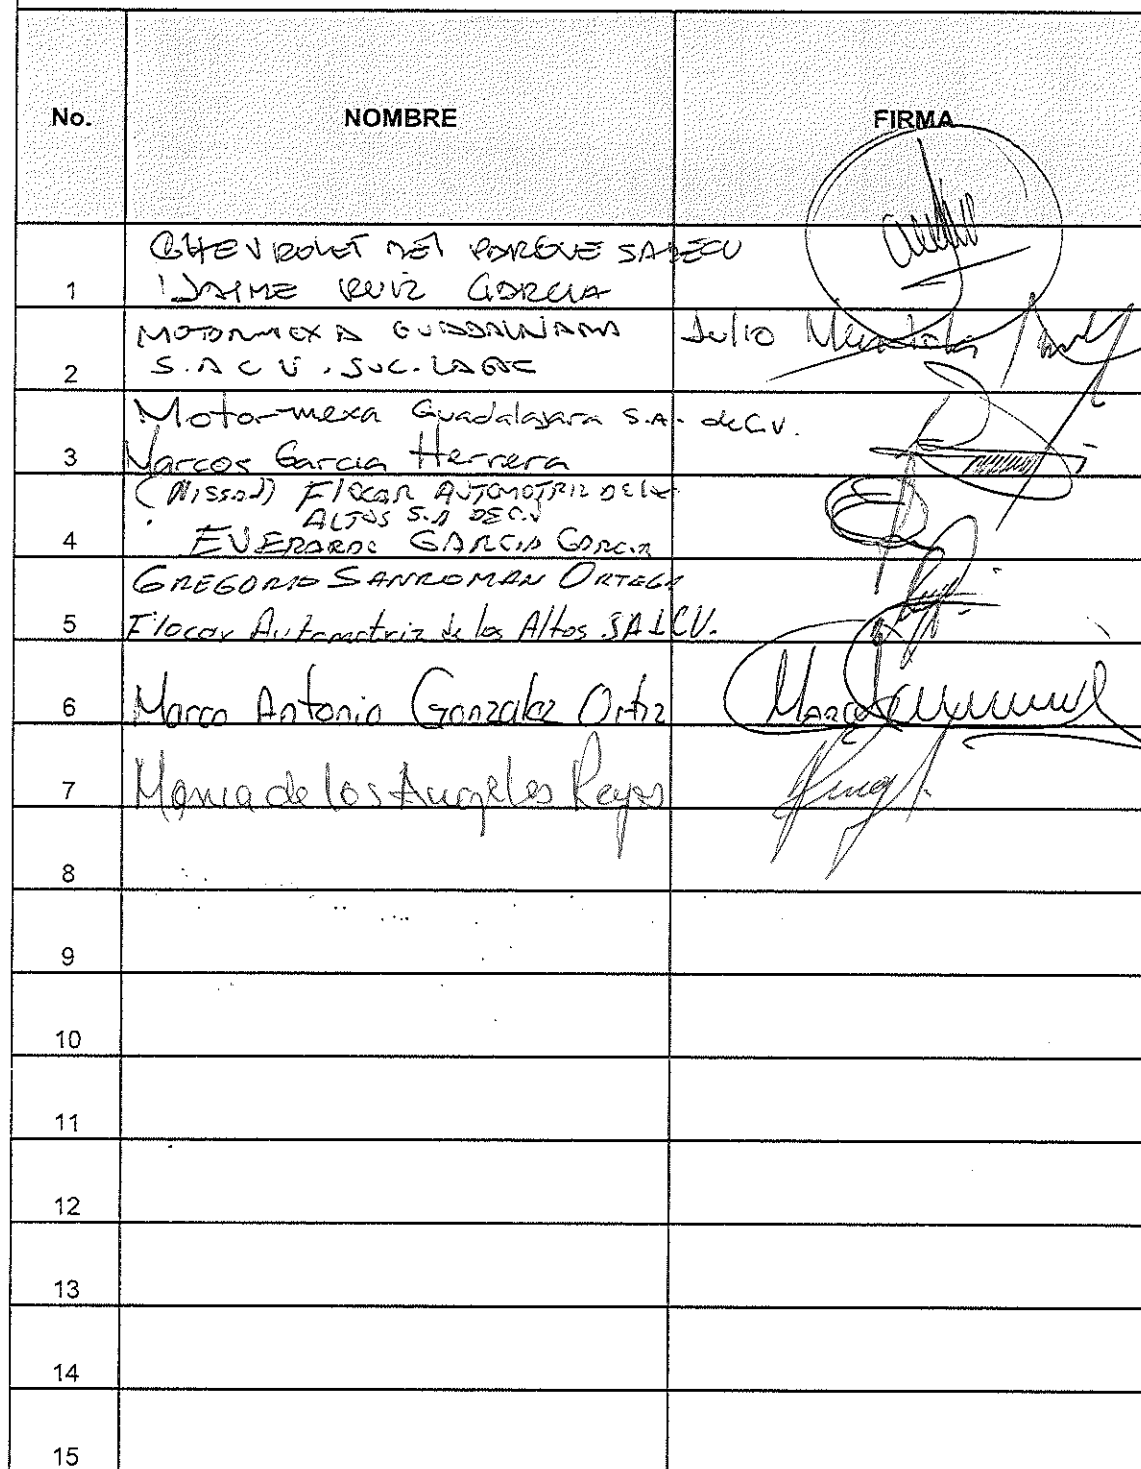 No. NOMBRE FIRMA
CHEVROLET DEL PARQUE SA DE CV
1 JAIME RUIZ GARCIA
MOTORMEXA GUADALAJARA Julio
2 S.A C V . SUC. LAGOS
Motormexa Guadalajara S.A. de C.V.
3 Marcos Garcia Herrera
(NISSAN) FLOCAR AUTOMOTRIZ DE LOS
ALTOS S.A DE C.V
4 EVERARDO GARCIA GARCIA
GREGORIO SANROMAN ORTEGA
5 Flocar Automotriz de los Altos SA CV.
6 Marco Antonio Gonzalez Ortiz Marco
7 Maria de los Angeles Reyes
8
9
10
11
12
13
14
15